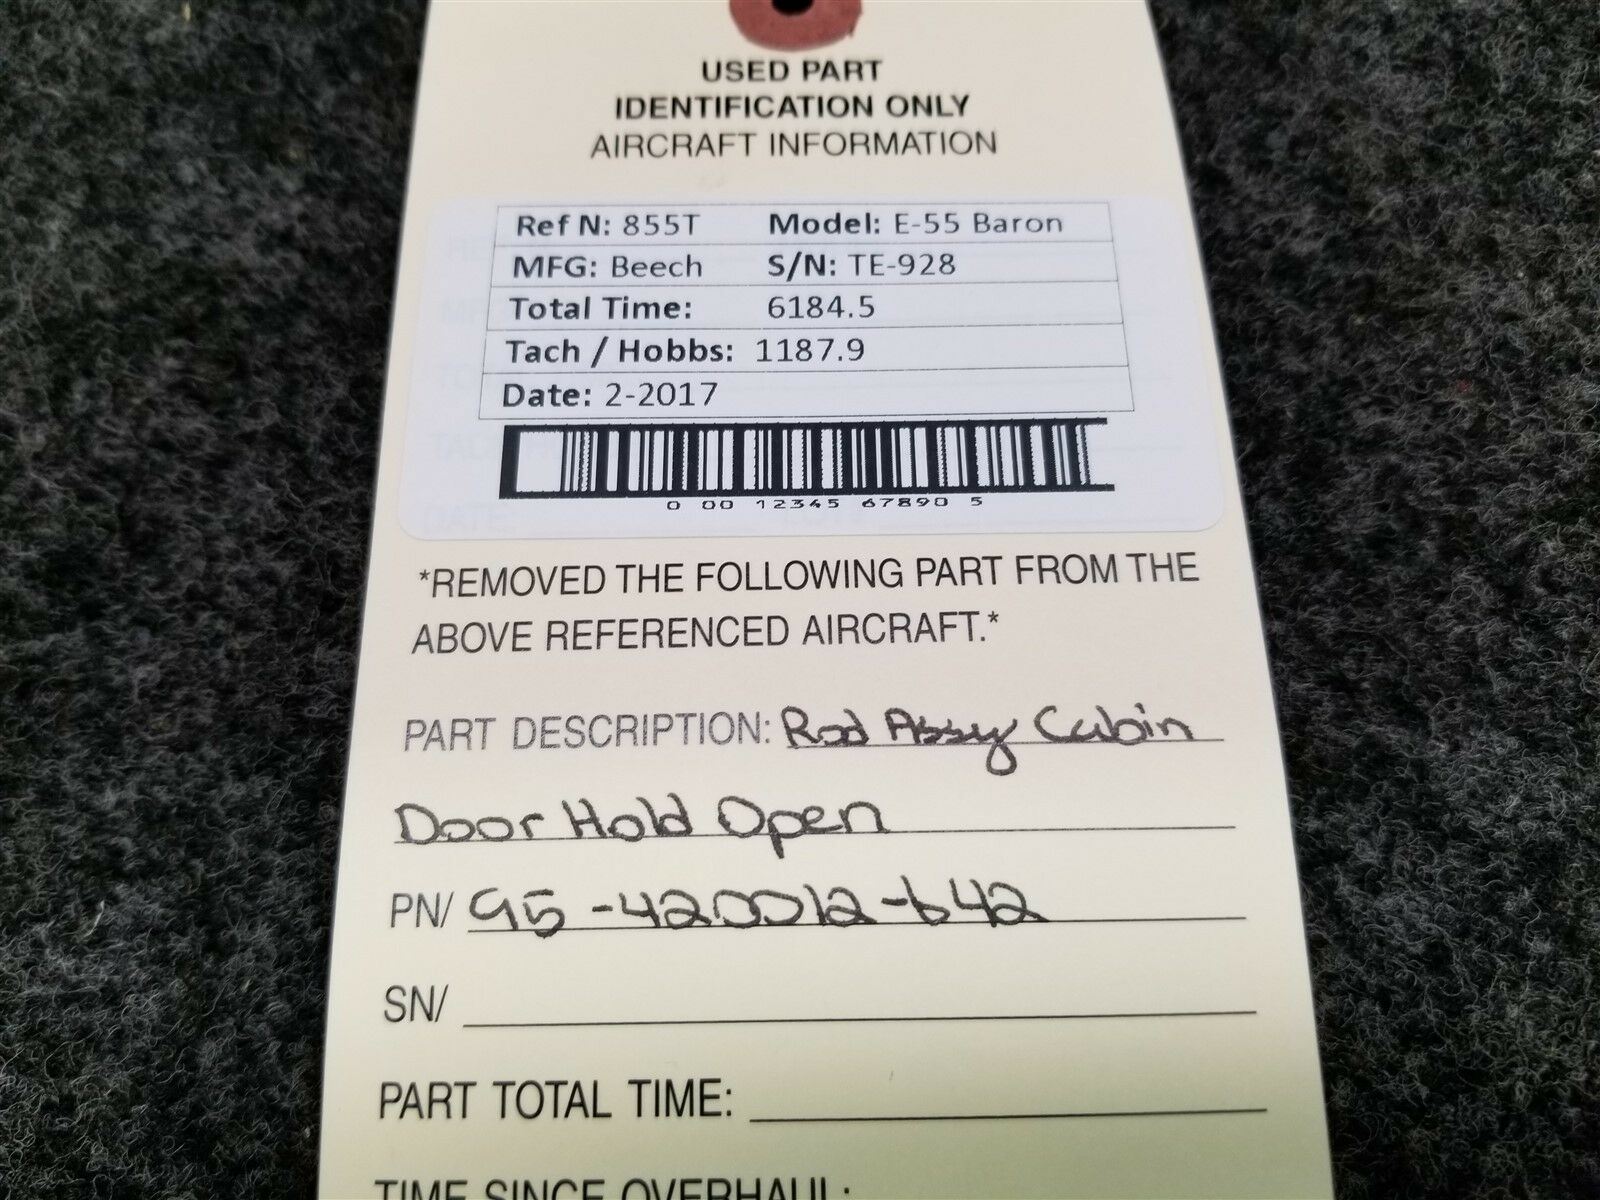 USED PART
IDENTIFICATION ONLY
AIRCRAFT INFORMATION
Ref N: 855T Model: E-55 Baron
MFG: Beech S/N: TE-928
Total Time: 6184.5
Tach / Hobbs: 1187.9
Date: 2-2017
0 00 12345 67890 5
*REMOVED THE FOLLOWING PART FROM THE
ABOVE REFERENCED AIRCRAFT.*
PART DESCRIPTION: Rod Assy Cabin
Door Hold Open
PN/ 95-420012-642
SN/
PART TOTAL TIME:
TIME SINCE OVERHAUL: